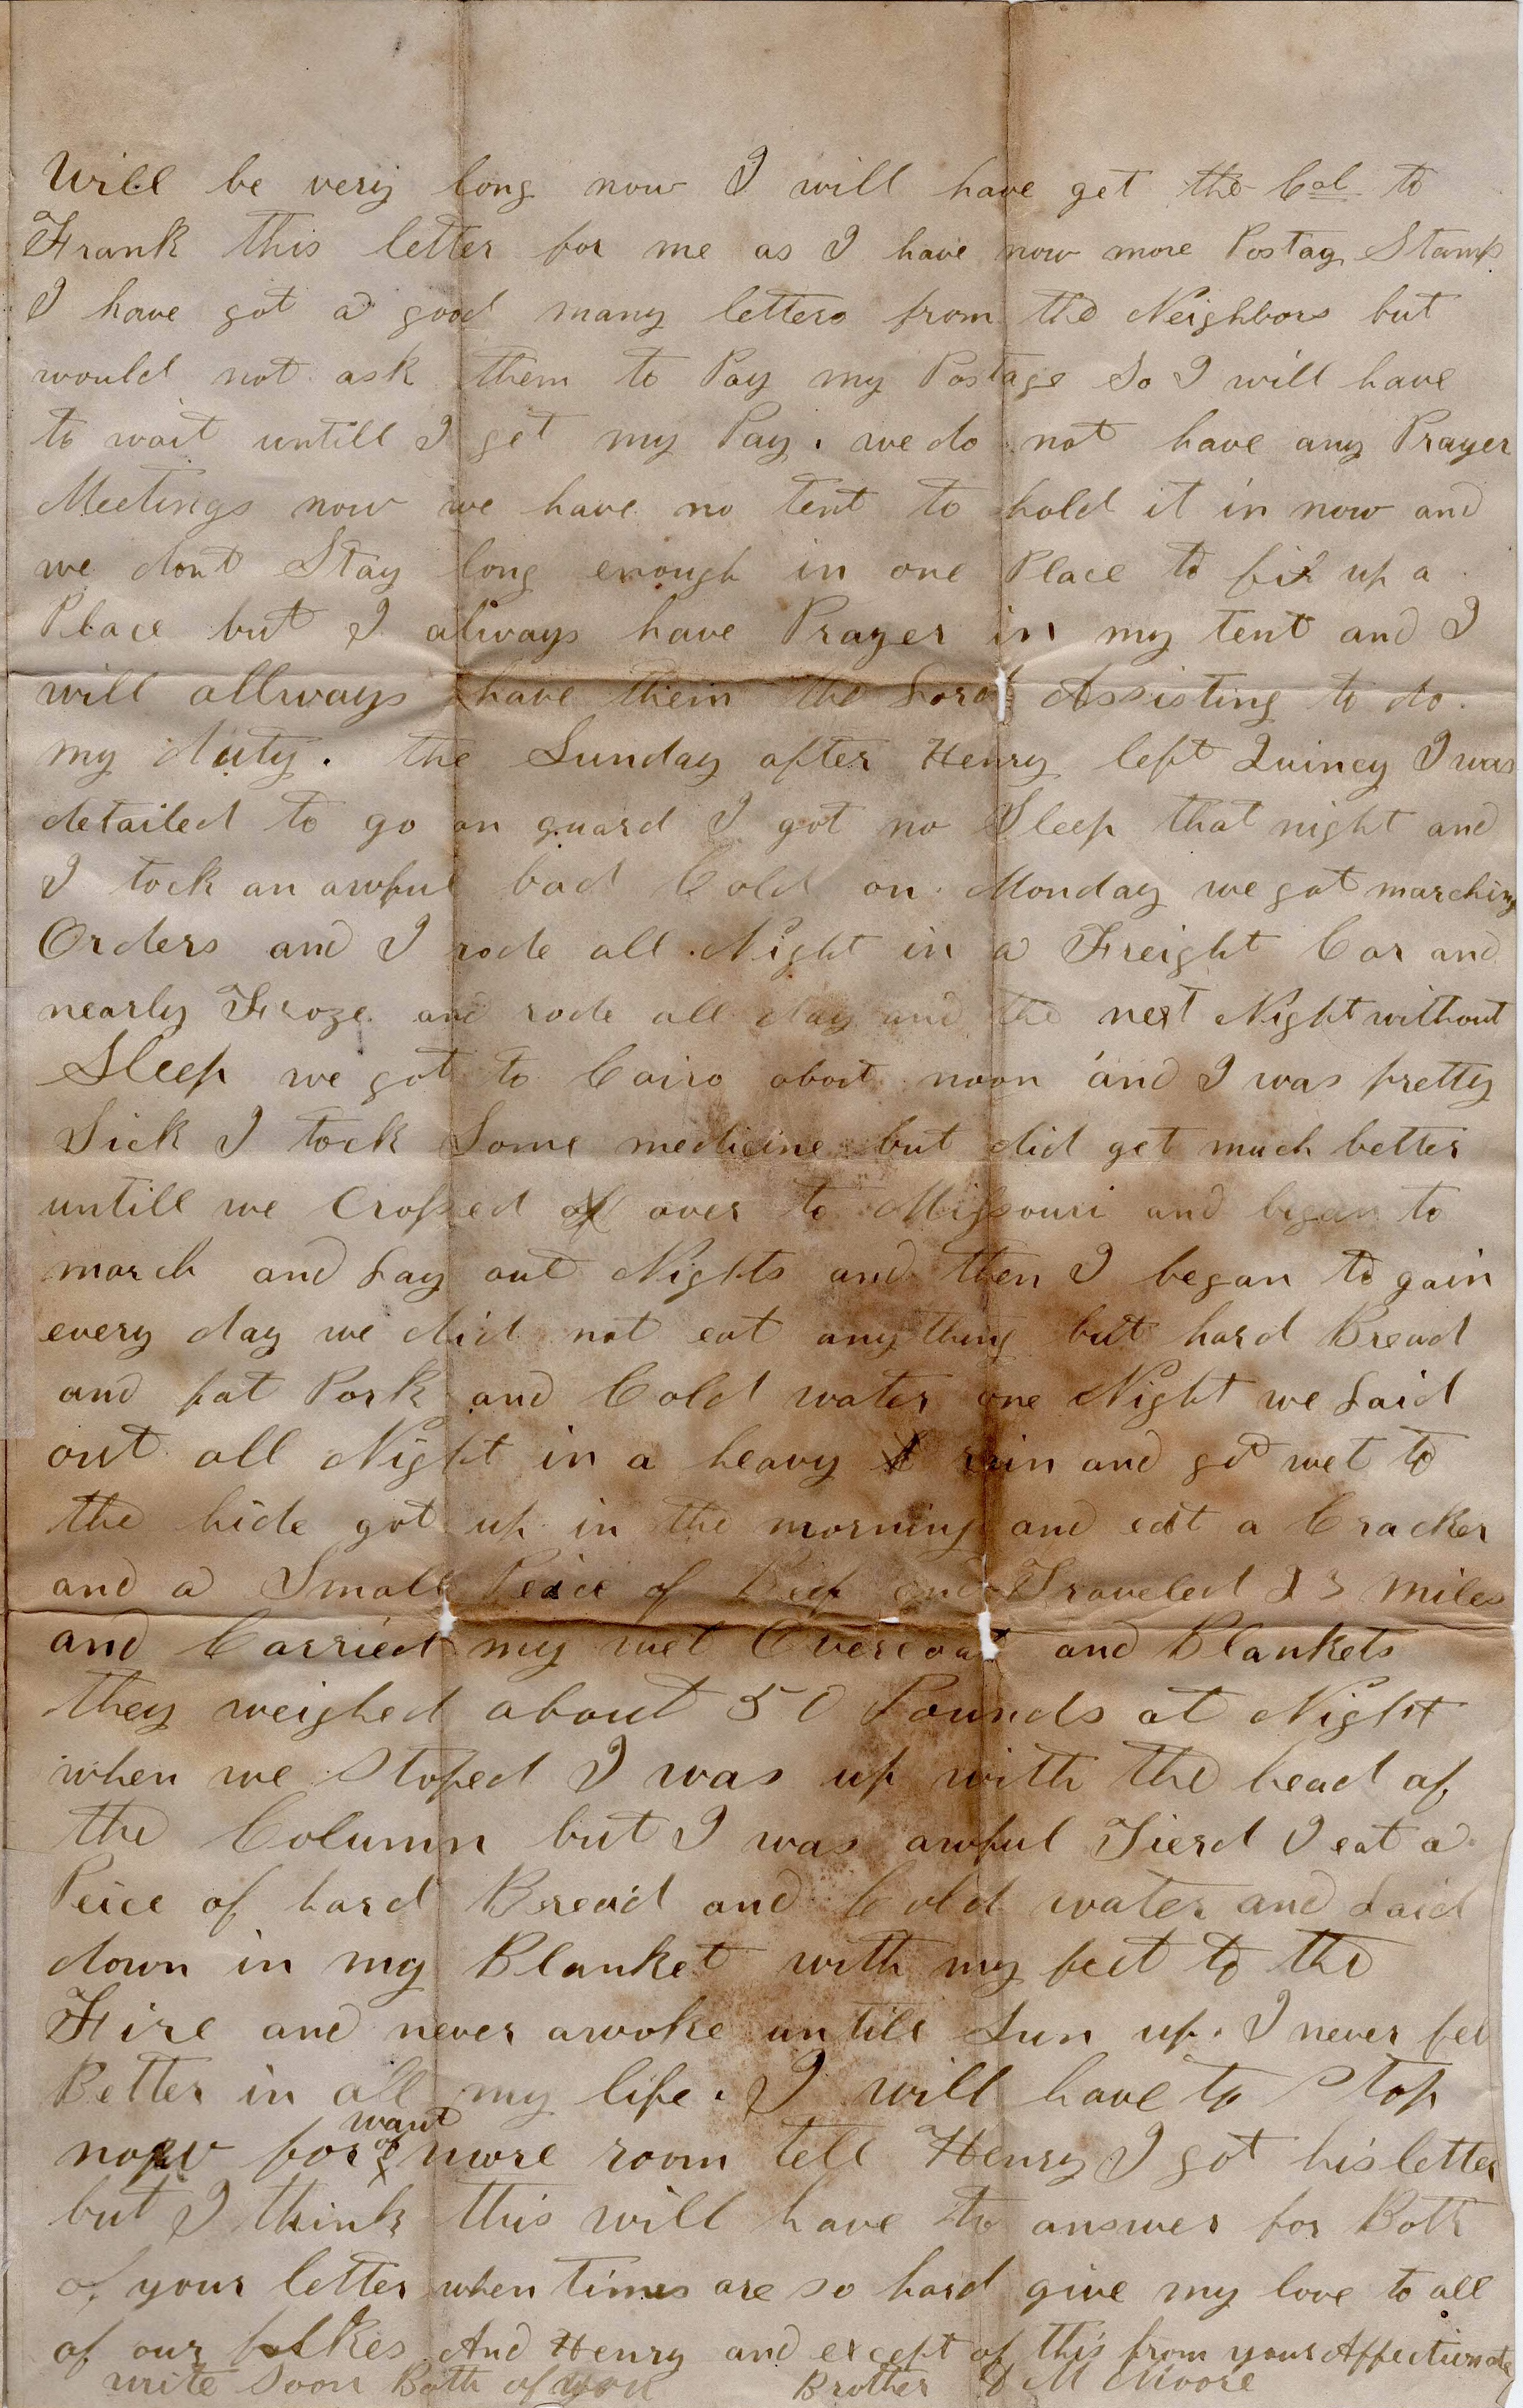 Will be very long now I will have get the Col to
Frank this letter for me as I have now more Postag Stamps
I have got a good many letters from the Neighbors but
would not ask them to Pay my Postage So I will have
to wait untill I get my Pay. we do not have any Prayer
Meetings now we have no tent to hold it in now and
we dont Stay long enough in one Place to fix up a
Place but I always have Prayer in my tent and I
will allways have them the Lord Assisting to do
my duty. the Sunday after Henry left Quincy I was
detailed to go on guard I got no Sleep that night and
I tock an awful bad Cold on Monday we got marching
Orders and I rode all Night in a Freight Car and
nearly Froze and rode all day and the next Night without
Sleep we got to Cairo about noon and I was pretty
Sick I tock Some medicine but did get much better
untill we Crossed over to Missouri and began to
march and Lay out Nights and then I began to gain
every day we did not eat any thing but hard Bread
and fat Pork and Cold water one Night we Laid
out all Night in a heavy rain and got wet to
the hide got up in the morning and eat a Cracker
and a Small Peice of Beef and Traveled 23 miles
and Carried my wet Overcoat and Blankets
they weighed about 50 Pounds at Night
when we Stoped I was up with the head of
the Column but I was awful Tierd I eat a
Peice of hard Bread and Cold water and Laid
down in my Blanket with my feet to the
Fire and never awoke untill Sun up. I never fel
Better in all my life. I will have to Stop
now for want of more room tell Henry I got his letter
but I think this will have to answer for Both
of your letter when times are so hard give my love to all
of our folkes And Henry and except of this from your Affectionate
write soon Both of you Brother D M Moore